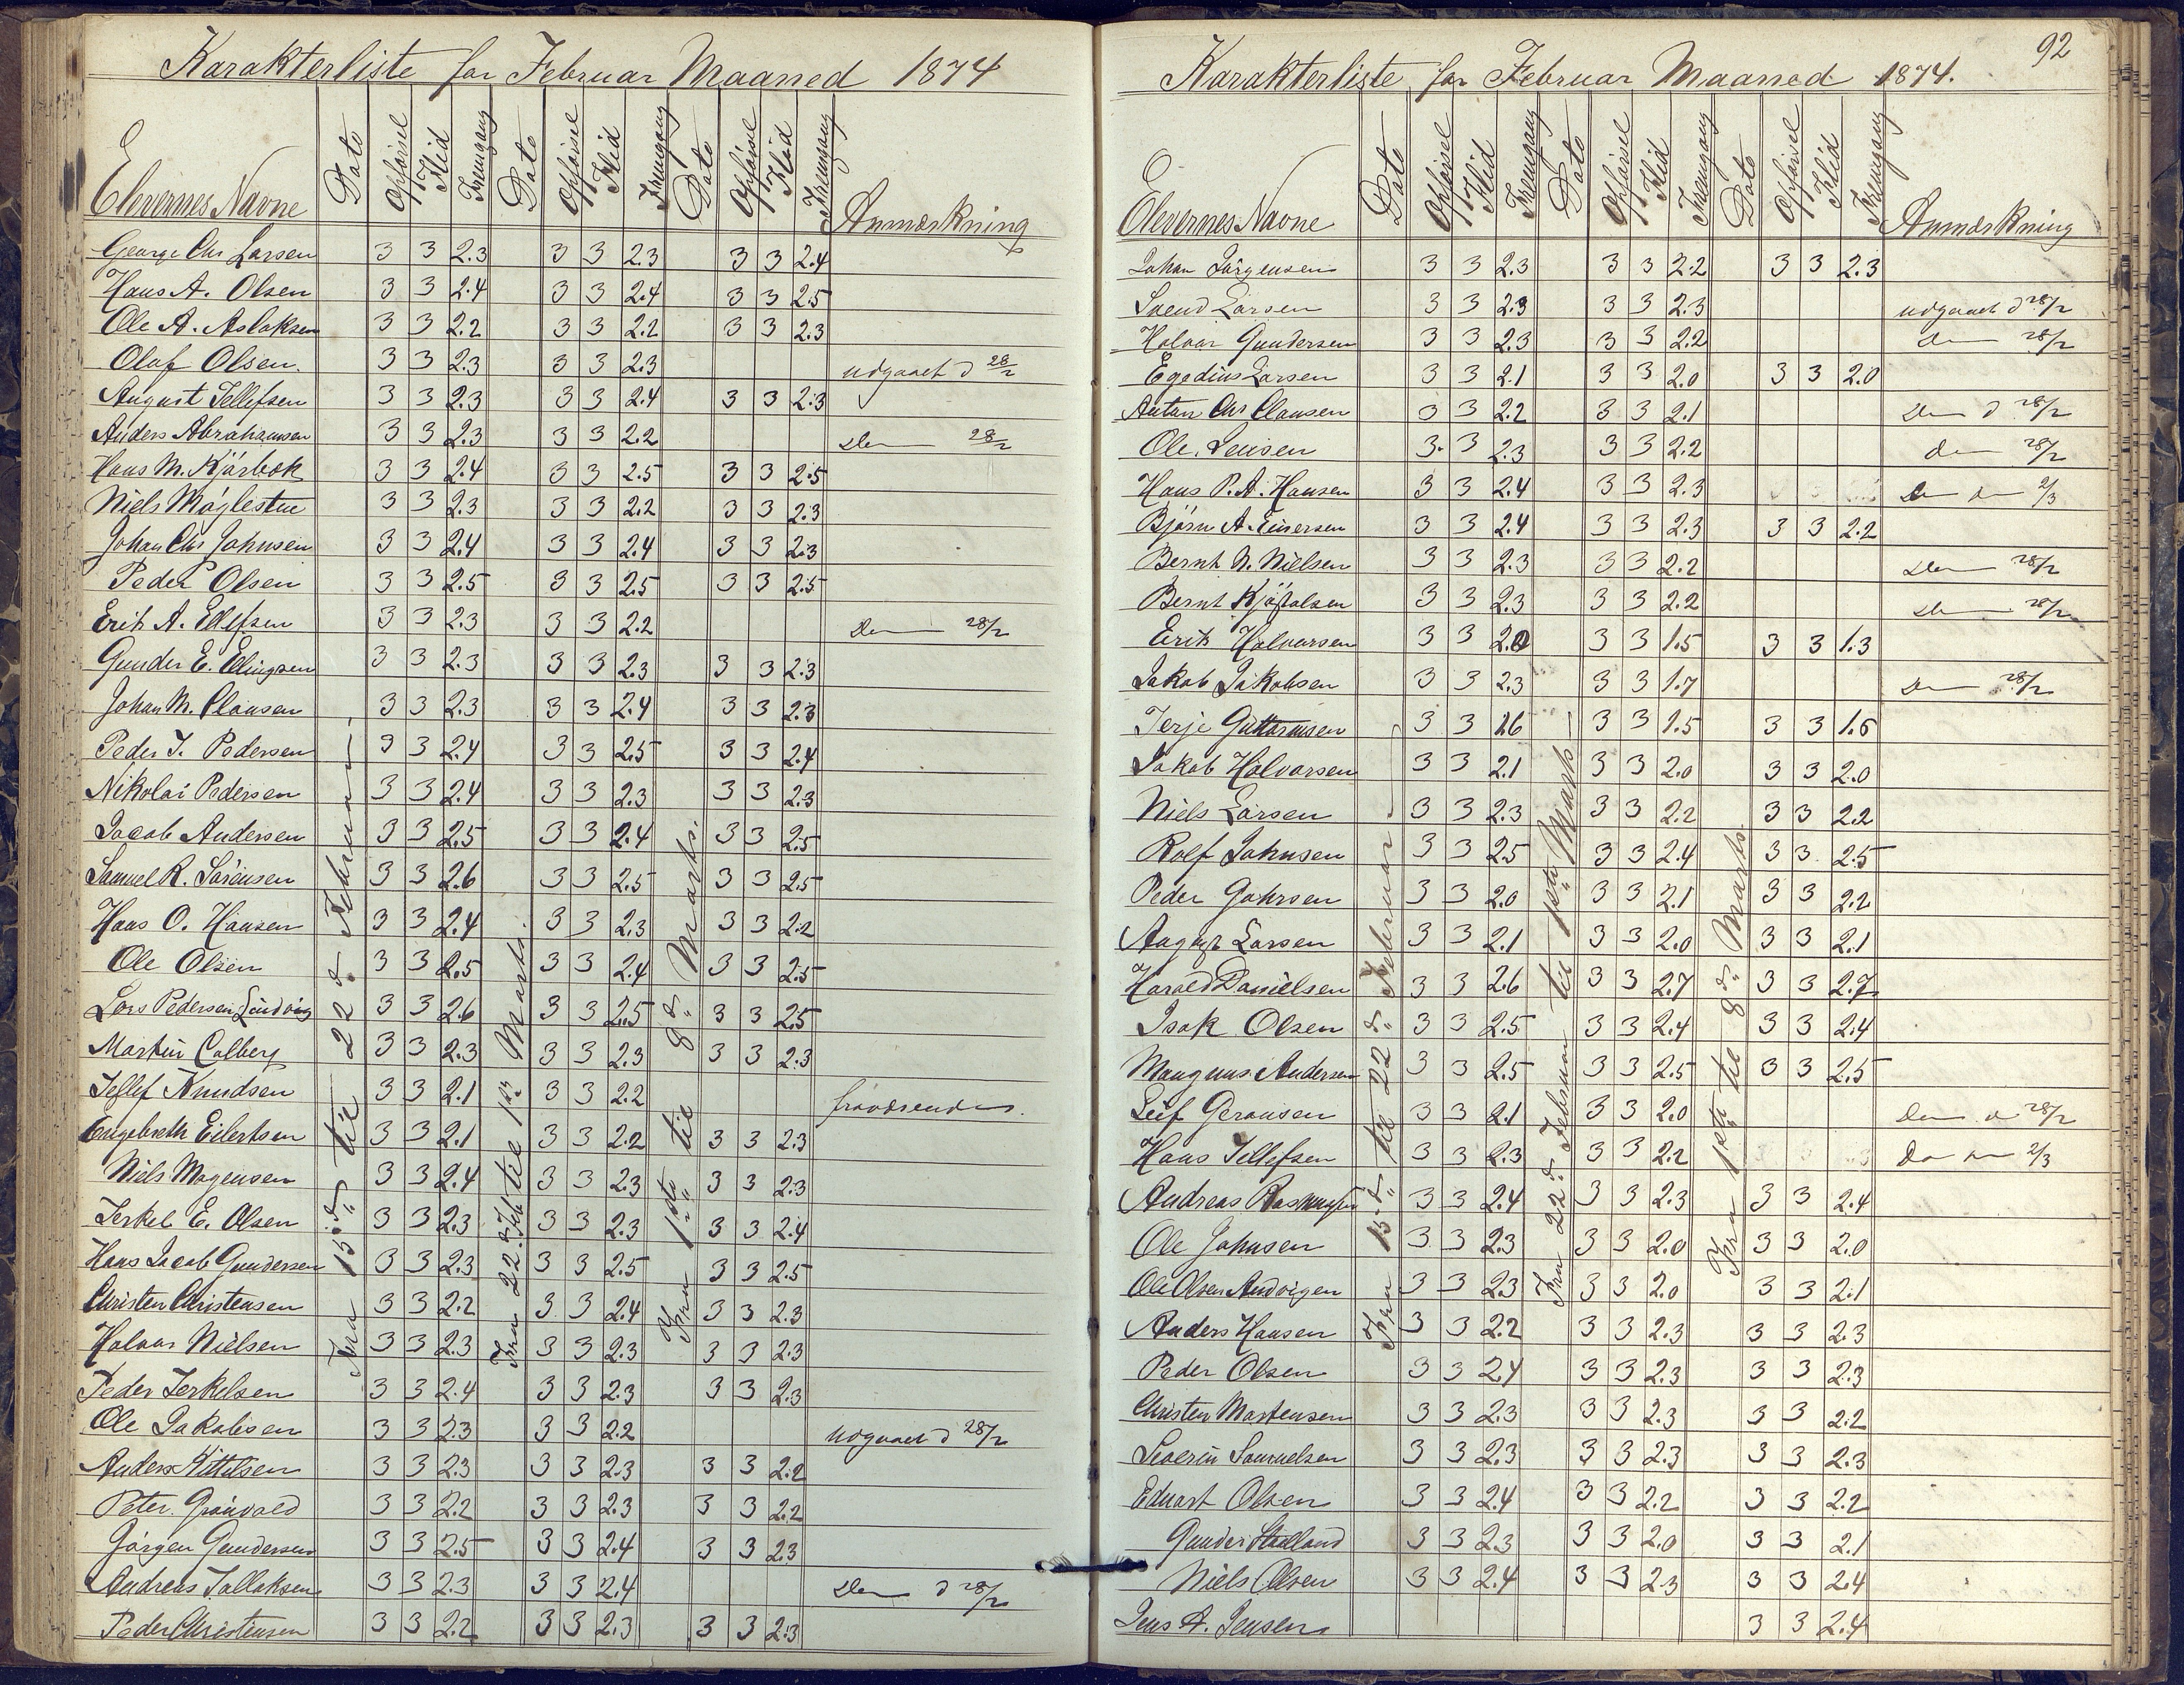 Karakterliste for Februar Maaned 1874
Elevernes Navne Dato Opførsel Flid Fremgang Dato Opførsel Flid Fremgang Dato Opførsel Flid Fremgang Anmærkning
Fra 15de til 22de Februar
Fra 22de Feb til 1ste Marts.
Fra 1ste til 8de Marts.
George Chr Larsen 3 3 2.3 3 3 2.3 3 3 2.4
Hans A. Olsen 3 3 2.4 3 3 2.4 3 3 2.5
Ole A. Aslaksen 3 3 2.2 3 3 2.2 3 3 2.3
Olaf Olsen. 3 3 2.3 3 3 2.3 udgaaet d 28/2
August Tellefsen 3 3 2.3 3 3 2.4 3 3 2.3
Anders Abrahamsen 3 3 2.3 3 3 2.2 28/2
Hans M. Kjärbok 3 3 2.4 3 3 2.5 3 3 2.5
Niels Møglestue 3 3 2.3 3 3 2.2 3 3 2.3
Johan Chr Johnsen 3 3 2.4 3 3 2.4 3 3 2.3
Peder Olsen 3 3 2.5 3 3 2.5 3 3 2.5
Erik A. Ellefsen 3 3 2.3 3 3 2.2 28/2
Gunder E. Elingsen 3 3 2.3 3 3 2.3 3 3 2.3
Johan M. Clausen 3 3 2.3 3 3 2.4 3 3 2.3
Peder J. Pedersen 3 3 2.4 3 3 2.5 3 3 2.4
Nikolai Pedersen 3 3 2.4 3 3 2.3 3 3 2.3
Jacob Andersen 3 3 2.5 3 3 2.4 3 3 2.5
Samuel R. Sørensen 3 3 2.6 3 3 2.5 3 3 2.5
Hans O. Hansen 3 3 2.4 3 3 2.3 3 3 2.2
Ole Olsen 3 3 2.5 3 3 2.4 3 3 2.5
Lars Pedersen Lindvig 3 3 2.6 3 3 2.5 3 3 2.5
Martin Calberg 3 3 2.3 3 3 2.3 3 3 2.3
Tellef Knudsen 3 3 2.1 3 3 2.2
Engebreth Eilertsen 3 3 2.1 3 3 2.2 3 3 2.3
Niels Mogensen 3 3 2.4 3 3 2.3 3 3 2.3
Terkel E. Olsen 3 3 2.3 3 3 2.3 3 3 2.4
Hans Jacob Gundersen 3 3 2.3 3 3 2.5 3 3 2.5
Christen Christensen 3 3 2.2 3 3 2.4 3 3 2.3
Halvor Nielsen 3 3 2.3 3 3 2.3 3 3 2.3
Peder Terkelsen 3 3 2.4 3 3 2.3 3 3 2.3
Ole Jakobsen 3 3 2.3 3 3 2.2 udgaaet d 28/2
Anders Kittelsen 3 3 2.3 3 3 2.3 3 3 2.2
Peter Grønvold 3 3 2.2 3 3 2.3 3 3 2.2
Jørgen Gundersen 3 3 2.5 3 3 2.4 3 3 2.3
Andreas Tallaksen 3 3 2.3 3 3 2.4 d 28/2
Peder Christensen 3 3 2.2 3 3 2.3 3 3 2.3
92
Karakterliste for Februar Maaned 1874.
Elevernes Navne Dato Opførsel Flid Fremgang Dato Opførsel Flid Fremgang Dato Opførsel Flid Fremgang Anmærkning
Fra 15de til 22de Februar
Fra 22de Februar til 1ste Marts
Fra 1ste til 8de Marts.
Johan Jørgensen 3 3 2.3 3 3 2.2 3 3 2.3
Svend Larsen 3 3 2.3 3 3 2.3 udgaaet d 28/2
Halvor Gundersen 3 3 2.3 3 3 2.2 28/2
Egedius Larsen 3 3 2.1 3 3 2.0 3 3 2.0
Anton Chr Clausen 3 3 2.2 3 3 2.1 d 28/2
Ole Jensen 3 3 2.3 3 3 2.2 28/2
Hans P. A. Hansen 3 3 2.4 3 3 2.3 2/3
Bjørn A. Einersen 3 3 2.4 3 3 2.3 3 3 2.2
Bernt N. Nielsen 3 3 2.3 3 3 2.2 28/2
Bernt Kjøstolsen 3 3 2.3 3 3 2.2 28/2
Erik Halvorsen 3 3 2.0 3 3 1.5 3 3 1.3
Jakob Jakobsen 3 3 2.3 3 3 1.7 28/2
Terje Guttormsen 3 3 1.6 3 3 1.5 3 3 1.6
Jakob Halvorsen 3 3 2.1 3 3 2.0 3 3 2.0
Niels Larsen 3 3 2.3 3 3 2.2 3 3 2.2
Rolf Johnsen 3 3 2.5 3 3 2.4 3 3 2.5
Peder Johnsen 3 3 2.0 3 3 2.1 3 3 2.2
August Larsen 3 3 2.1 3 3 2.0 3 3 2.1
Harald Danielsen 3 3 2.6 3 3 2.7 3 3 2.7
Isak Olsen 3 3 2.5 3 3 2.4 3 3 2.4
Maugnus Andersen 3 3 2.5 3 3 2.5 3 3 2.5
Leif Geransen 3 3 2.1 3 3 2.0 28/2
Hans Tellefsen 3 3 2.3 3 3 2.2 2/3
Andreas Rasmussen 3 3 2.4 3 3 2.3 3 3 2.4
Ole Johnsen 3 3 2.3 3 3 2.0 3 3 2.0
Ole Olsen Andvigen 3 3 2.3 3 3 2.0 3 3 2.1
Anders Hansen 3 3 2.2 3 3 2.3 3 3 2.3
Peder Olsen 3 3 2.4 3 3 2.3 3 3 2.3
Christen Mortensen 3 3 2.3 3 3 2.3 3 3 2.2
Severin Samuelsen 3 3 2.3 3 3 2.3 3 3 2.3
Edvart Olsen 3 3 2.4 3 3 2.2 3 3 2.2
Gunder Stalland 3 3 2.3 3 3 2.0 3 3 2.1
Niels Olsen 3 3 2.4 3 3 2.3 3 3 2.4
Jens A. Jensen 3 3 2.4